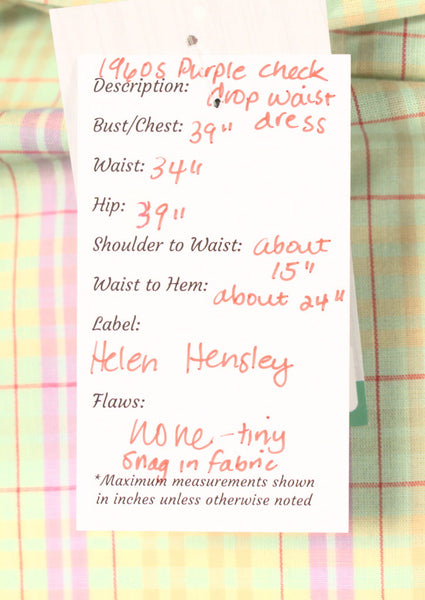 1960s Purple check
Description: drop waist
dress
Bust/Chest: 39"
Waist: 34"
Hip: 39"
Shoulder to Waist: about
15"
Waist to Hem: about 24"
Label:
Helen Hensley
Flaws:
none - tiny
snag in fabric
*Maximum measurements shown
in inches unless otherwise noted